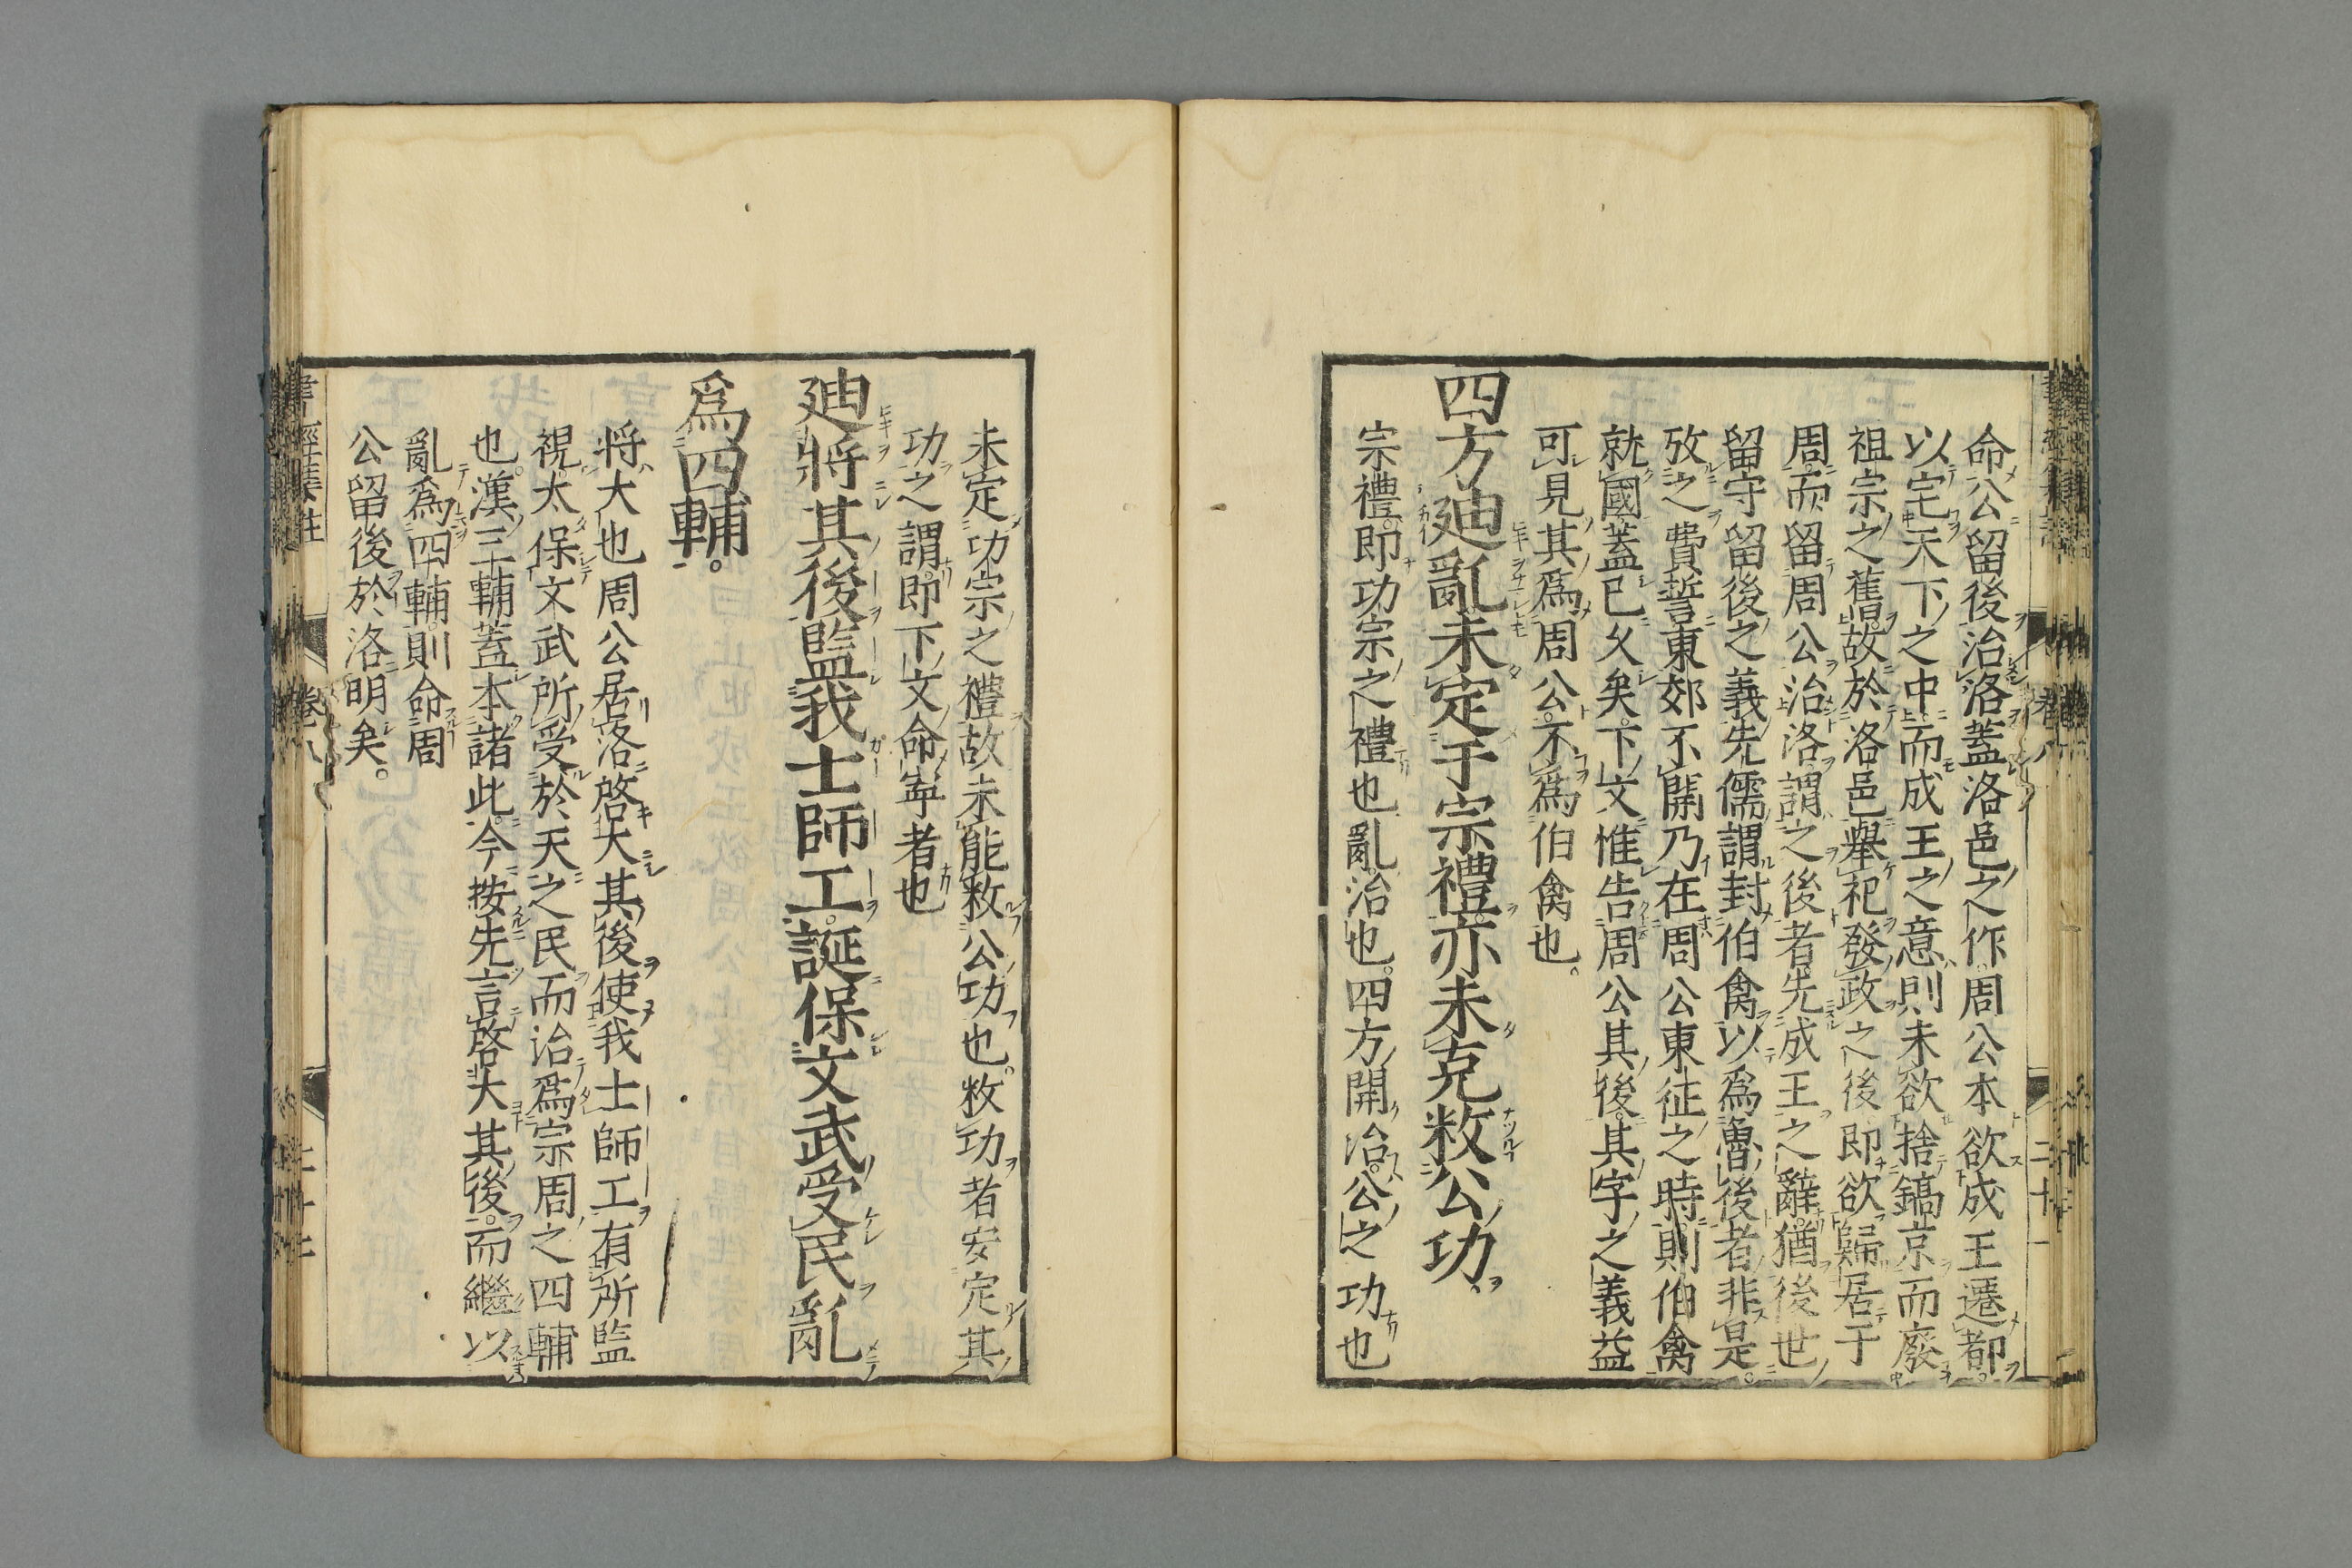 命公留後治洛蓋洛邑之作周公本欲成王遷都
以宅天下之中而成王之意則未欲捨鎬京而廢
祖宗之舊故於洛邑舉祀發政之後即欲歸居于
周而留周公治洛謂之後者先成王之辭猶後世
留守留後之義先儒謂封伯禽以爲魯後者非是
攷之費誓東郊不開乃在周公東征之時則伯禽
就國蓋已久矣下文惟告周公其後其字之義益
可見其爲周公不爲伯禽也
四方廸亂未定于宗禮亦未克敉公功
宗禮即功宗之禮也亂治也四方開治公之功也
未定功宗之禮故未能敉公功也敉功者安定其
功之謂即下文命寧者也
廸將其後監我士師工誕保文武受民亂
爲四輔
將大也周公居洛啓大其後使我士師工有所監
視大保文武所受於天之民而治爲宗周之四輔
也漢三輔蓋本諸此今按先言啓大其後而繼以
亂爲四輔則命周
公留後於洛明矣
卷八